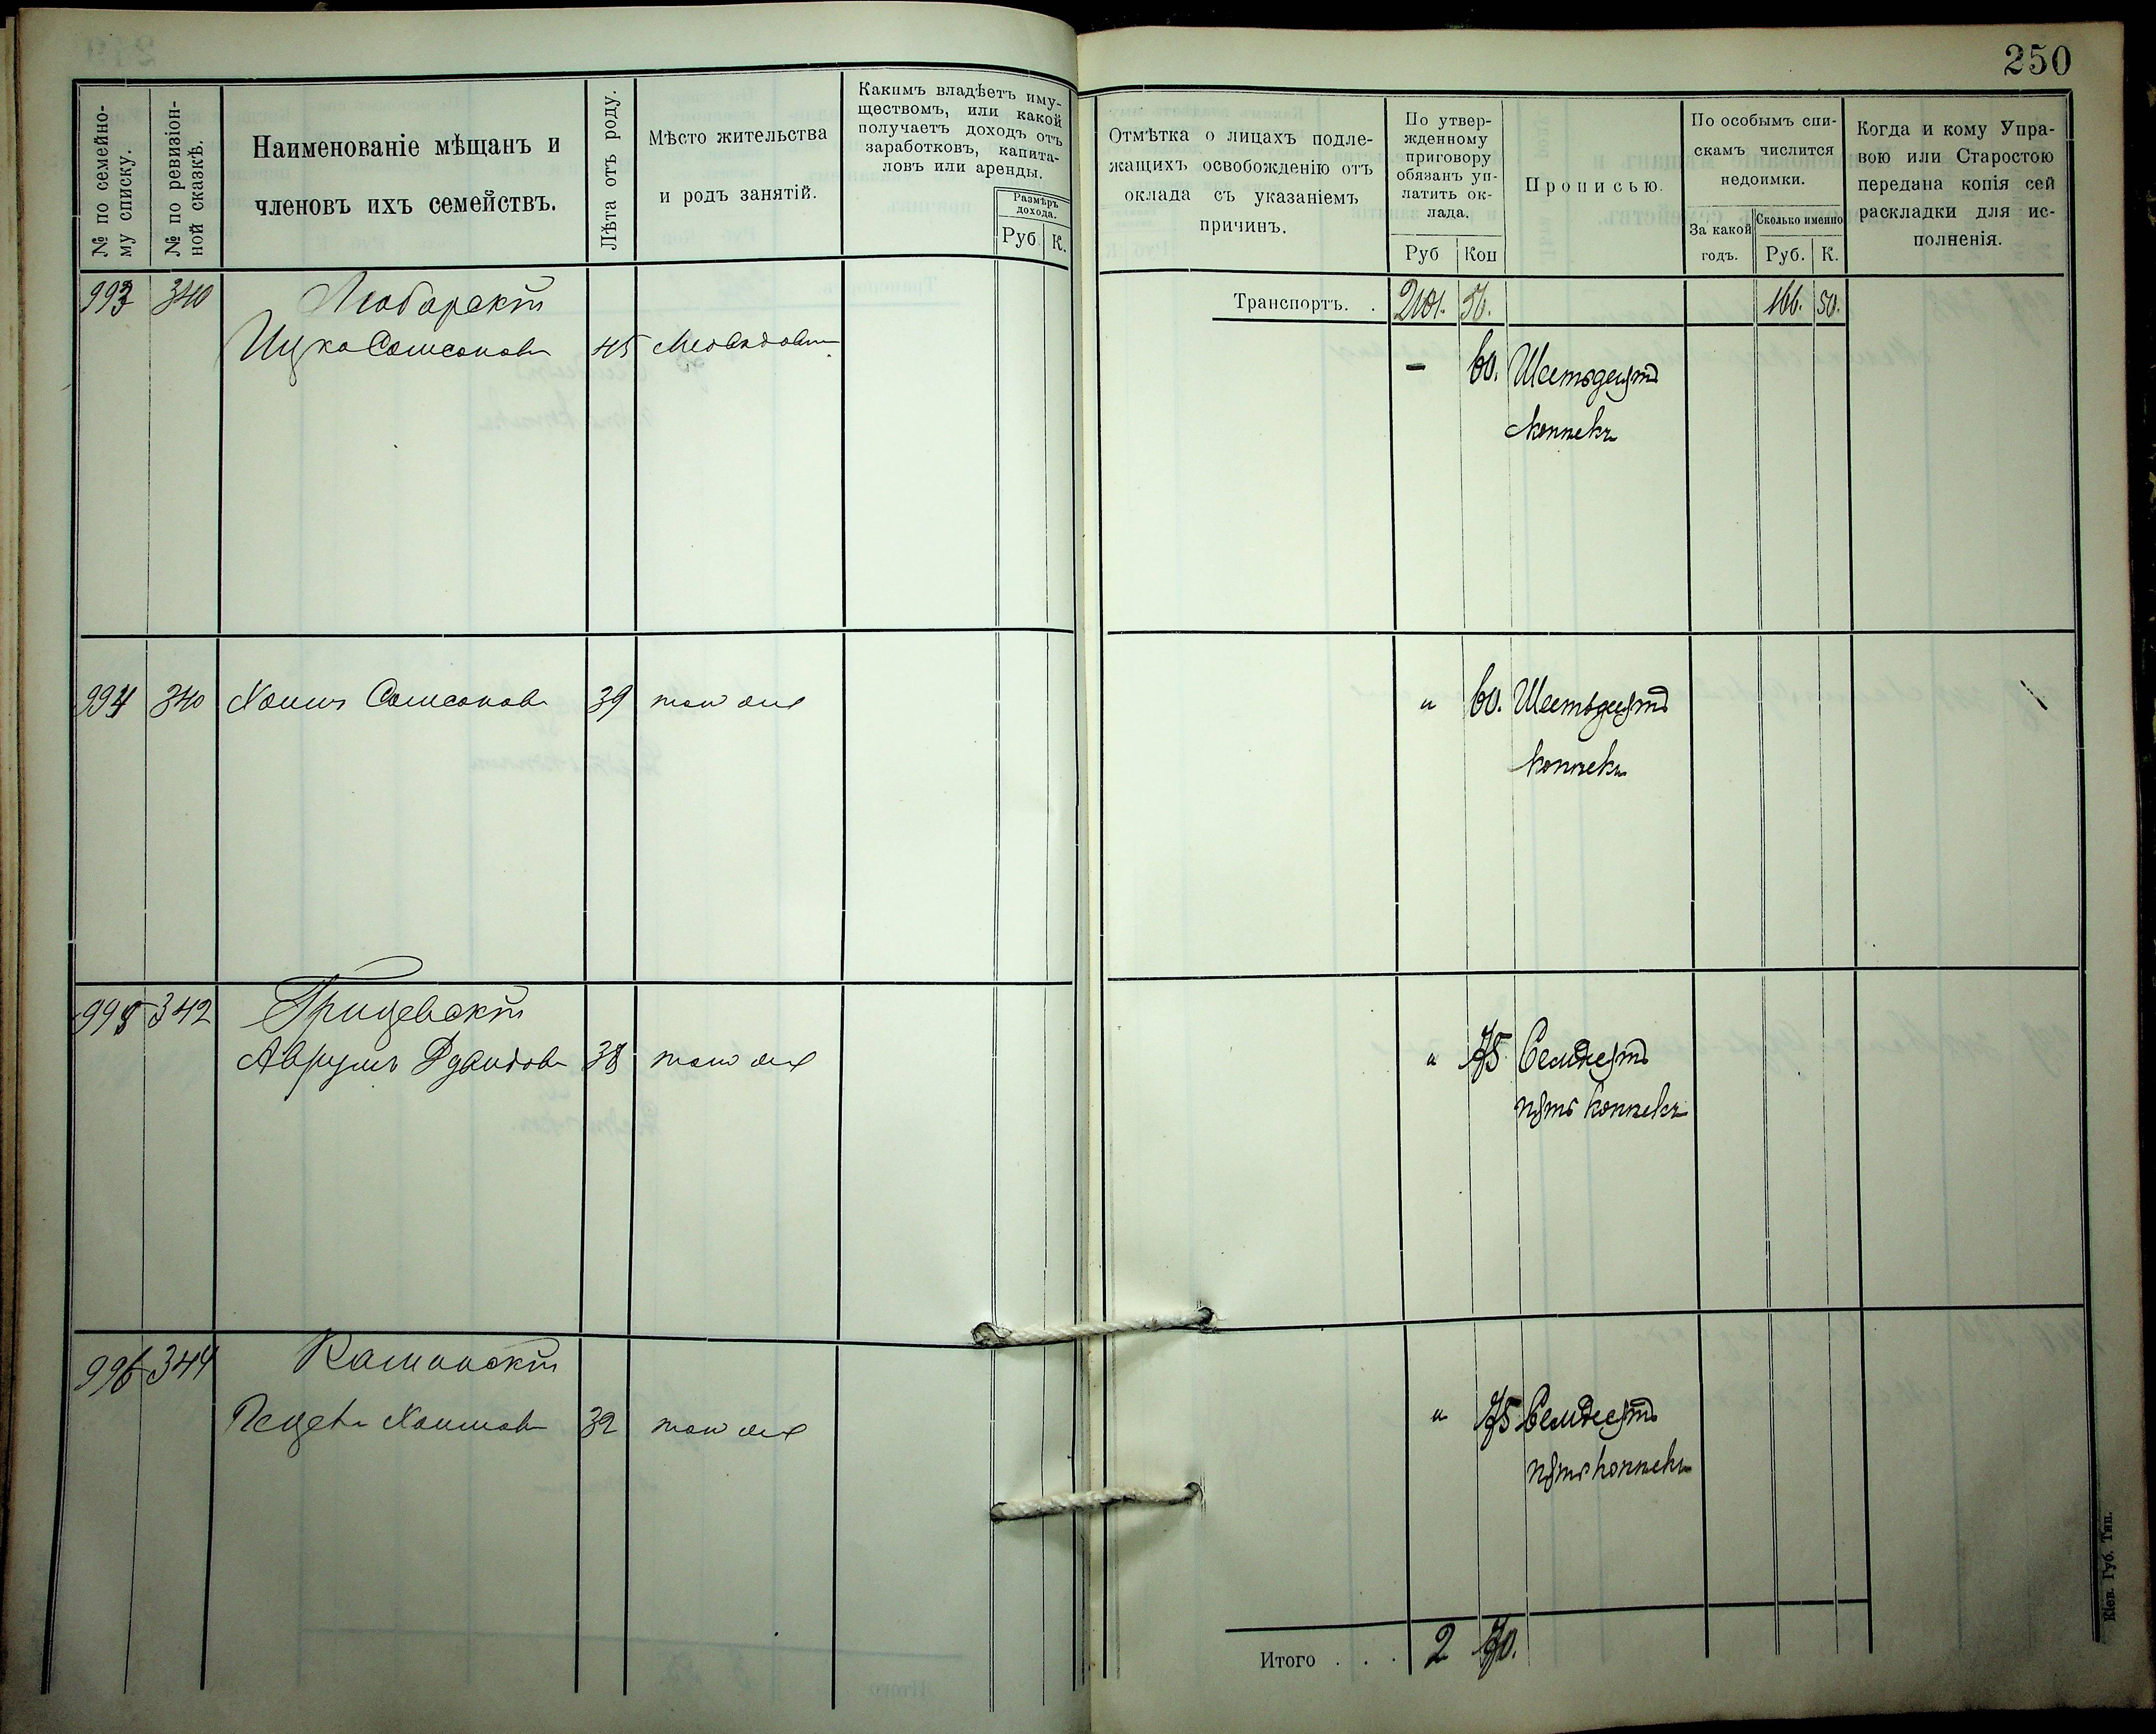 250
№ по семейно-
му списку.
№ по ревизіон-
ной сказкѣ.
Наименованіе мѣщанъ и
членовъ ихъ семействъ.
Лѣта отъ роду.
Мѣсто жительства
и родъ занятій.
Какимъ владѣетъ иму-
ществомъ, или какой
получаетъ доходъ отъ
заработковъ, капита-
ловъ или аренды.
Размѣръ
дохода.
Руб. К.
Отмѣтка о лицахъ подле-
жащихъ освобожденію отъ
оклада съ указаніемъ
причинъ.
По утвер-
жденному
приговору
обязанъ уп-
латить ок-
лада.
Руб Коп
Прописью.
По особымъ спи-
скамъ числится
недоимки.
За какой
годъ.
Сколько именно
Руб. К.
Когда и кому Упра-
вою или Старостою
передана копія сей
раскладки для ис-
полненія.
Транспортъ. . 2101. 56. 166. 50.
993 340 Любарскій
Ицко Самсоновъ 45 - 60. Шестьдесятъ
копѣекъ
994 340 Хаимъ Самсоновъ 39 тамъ же " 60. Шестьдесятъ
копѣекъ
995 342 Грищевскій
Аврумъ Дувидовъ 38 тамъ же " 75 Семдесятъ
пять копѣекъ
996 344 Каминскій
Хаимовъ 32 тамъ же " 75 Семдесятъ
пять копѣекъ
Итого . . . 2 70.
Кіев. Губ. Тип.